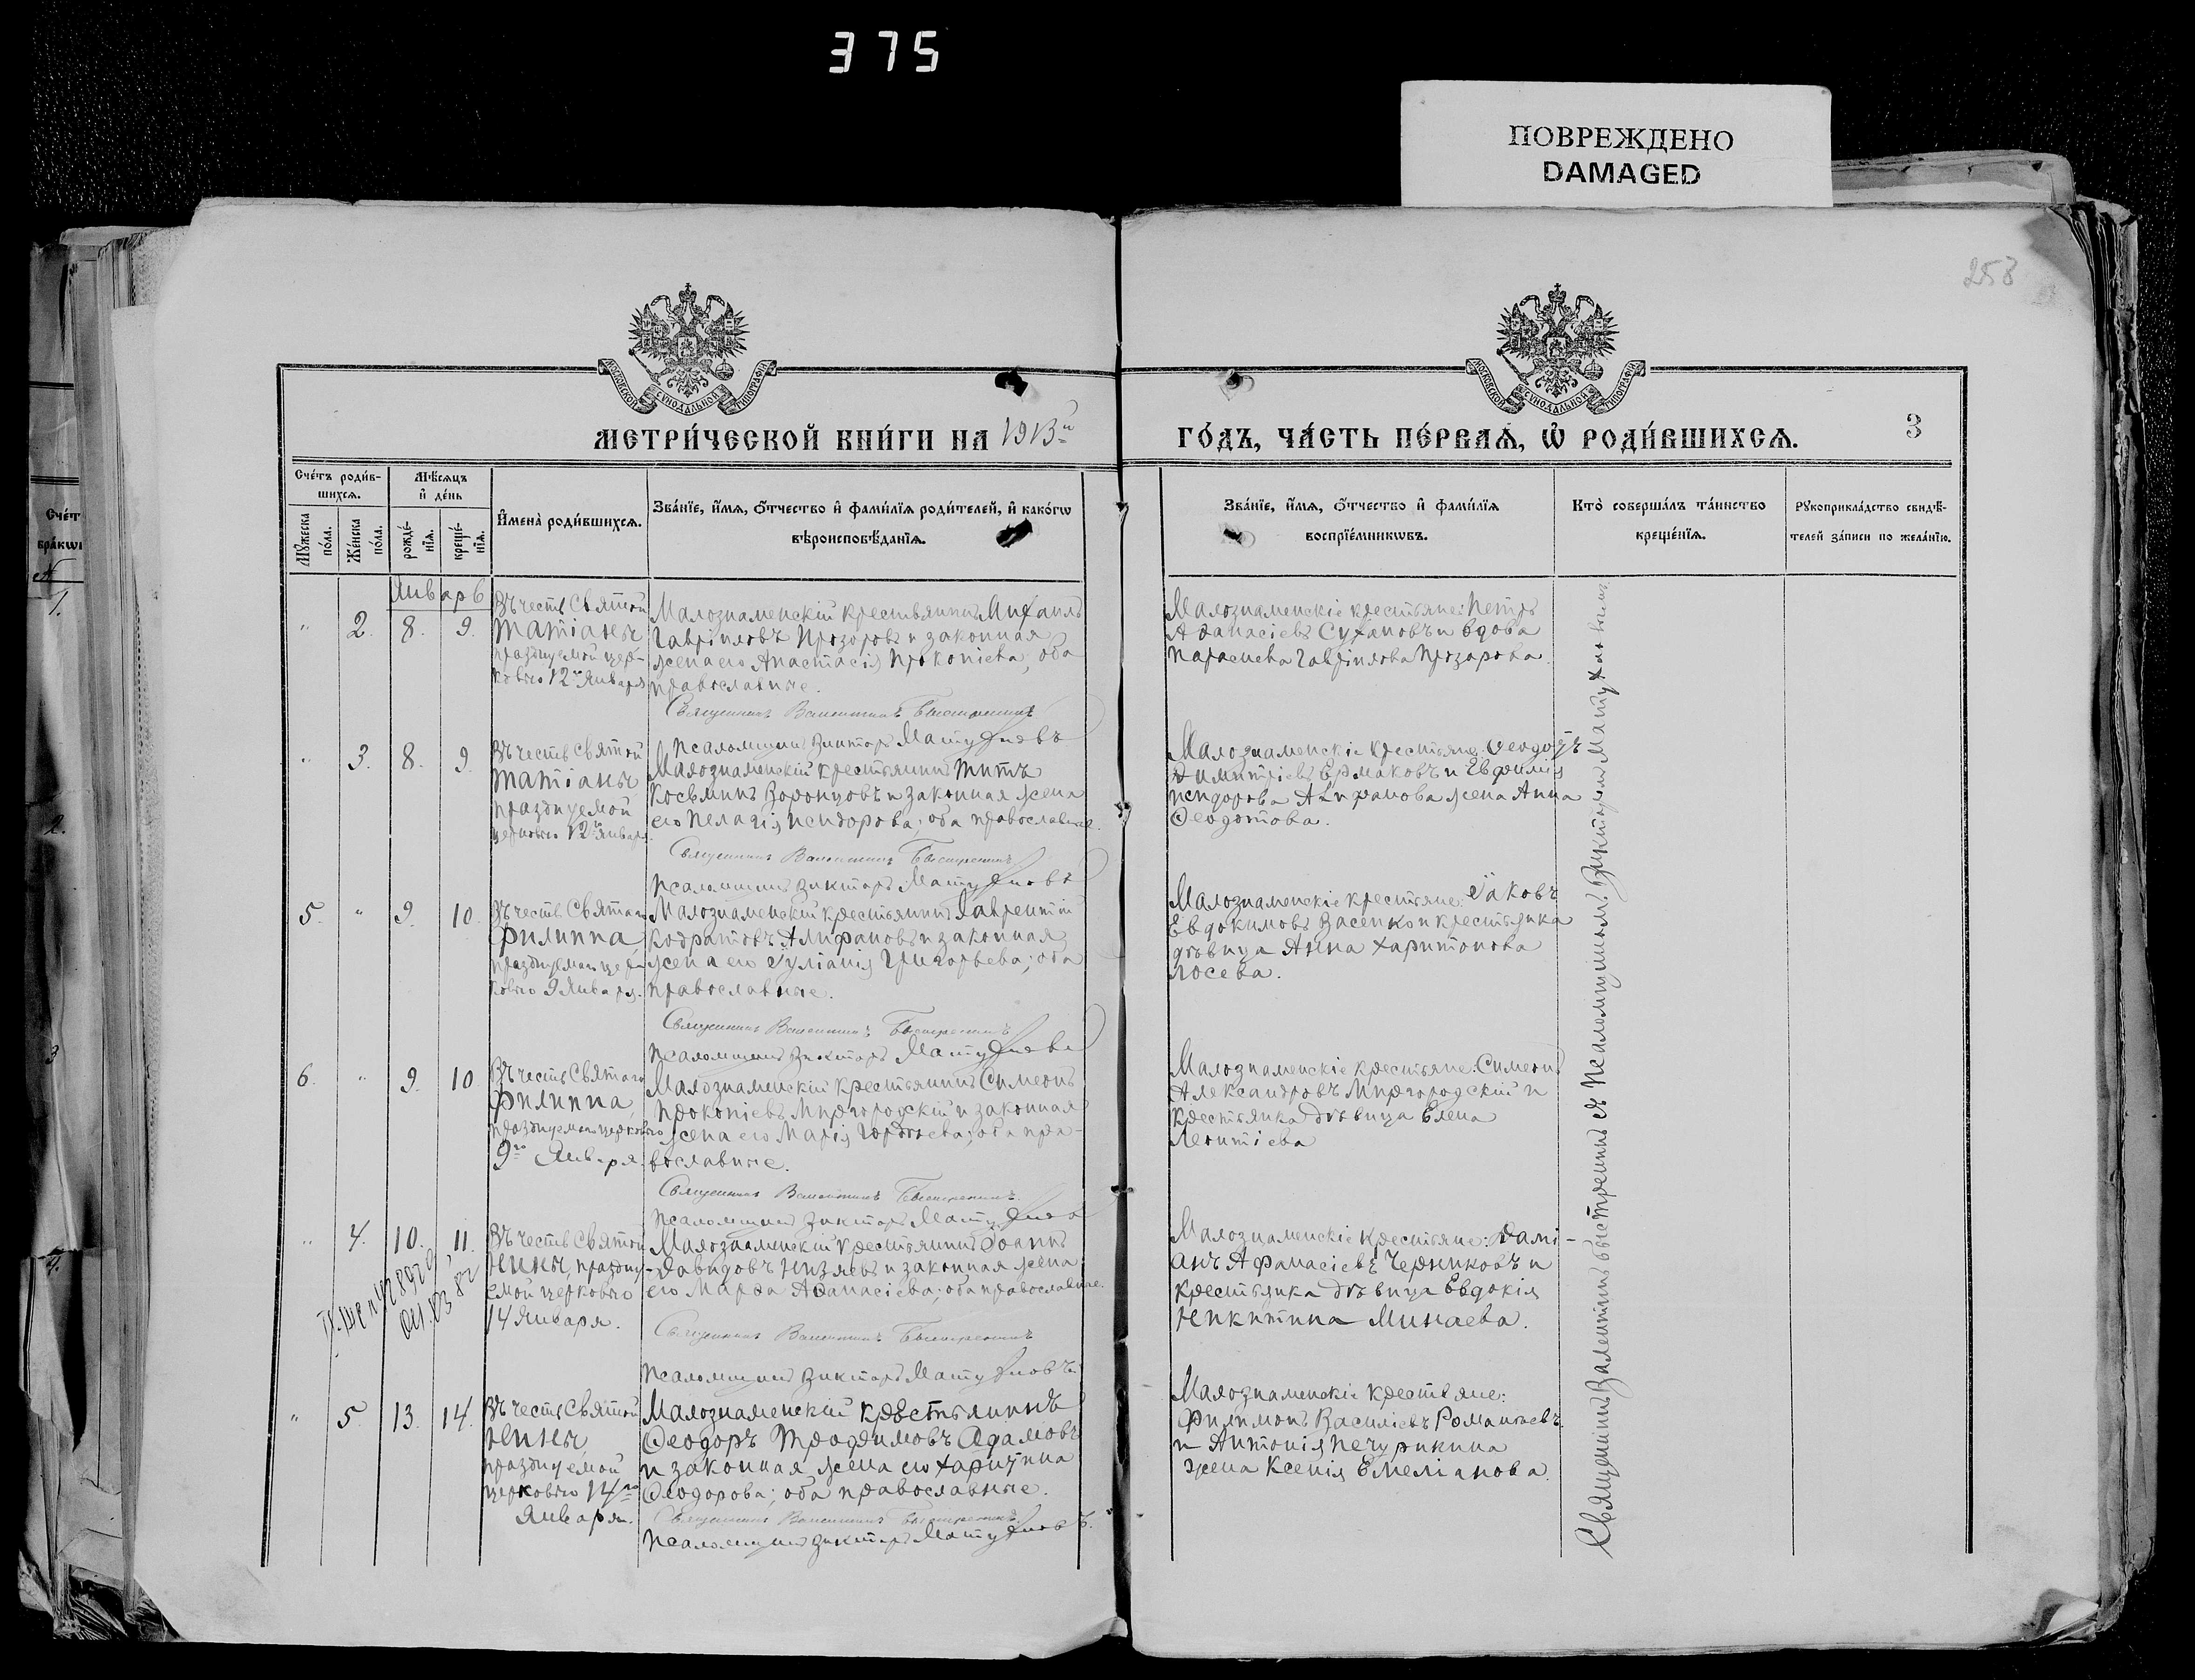 375
ПОВРЕЖДЕНО
DAMAGED
258
МОСКОВСКОЙ СѴНОДАЛЬНОЙ ТИПОГРАФІИ
МОСКОВСКОЙ СѴНОДАЛЬНОЙ ТИПОГРАФІИ
МЕТРИ́ЧЕСКОЙ КНИ́ГИ НА 1913й
ГО́ДЪ, ЧА́СТЬ ПЕ́РВАѦ, Ѡ҆ РОДИ́ВШИХСѦ.
3
Сче́тъ роди́в-
шихсѧ.
Мѣ́сѧцъ
и҆ де́нь
Мꙋ́жеска
по́ла.
Же́нска
по́ла.
рожде́-
нїѧ.
креще́-
нїѧ.
И҆мена̀ роди́вшихсѧ.
Зва́нїе, и҆́мѧ, ѻ҆́тчество и҆ фами́лїѧ роди́телей, и҆ како́гѡ
вѣроисповѣ́данїѧ.
Зва́нїе, и҆́мѧ, ѻ҆́тчество и҆ фами́лїѧ
воспрїе́мникѡвъ.
Кто̀ соверша́лъ та́инство
креще́нїѧ.
Рꙋкоприкла́дство свидѣ́-
телей за́писи по жела́нїю.
Январь
" 2. 8. 9.
Въ честь Святой
Татіаны
празднуемой цер-
ковію 12го Января
Малознаменскій крестьянинъ Михаилъ
Гавріиловъ Прозоровъ и законная
жена его Анастасія Прокопіева, оба
православные.
Священникъ Валентинъ Быстренинъ
Псаломщикъ Викторъ Матухновъ
Малознаменскіе крестьяне: Петръ
Аѳанасіевъ Сухановъ и вдова
Параскева Гавріилова Прозарова.
" 3. 8. 9.
Въ честь Святой
Татіаны
празднуемой
церковію 12го Января
Малознаменскій крестьянинъ Титъ
Косьминъ Воронцовъ и законная жена
его Пелагія Исидорова; оба православные.
Священникъ Валентинъ Быстренинъ
Псаломщикъ Викторъ Матухновъ
Малознаменскіе крестьяне: Ѳеодотъ
Димитріевъ Ермаковъ и Евфимія
Исидорова Алифанова жена Анна
Ѳеодотова.
5. " 9. 10.
Въ честь Святаго
Филиппа,
празднуемаго цер-
ковію 9 Января.
Малознаменскій крестьянинъ Лаврентій
Кодратовъ Алифановъ и законная
жена его Іуліанія Григорьева; оба
православные.
Священникъ Валентинъ Быстренинъ
Псаломщикъ Викторъ Матухновъ
Малознаменскіе крестьяне: Іаковъ
Евдокимовъ Засенко и крестьянка
дѣвица Анна Харитонова
Лосева.
6. " 9. 10
Въ честь Святаго
Филиппа,
празднуемаго церковію
9го Января.
Малознаменскій крестьянинъ Симеонъ
Прокопіевъ Миргородскій и законная
жена его Марія Гордѣева; оба пра-
вославные.
Священникъ Валентинъ Быстренинъ
Псаломщикъ Викторъ Матухновъ
Малознаменскіе крестьяне: Симеонъ
Александровъ Миргородскій и
крестьянка дѣвица Елена
Леонтіева
" 4. 10. 11.
Въ честь Святой
Нины, праздну-
емой церковію
14 Января.
Малознаменскій крестьянинъ Іоаннъ
Давидовъ Низяевъ и законная жена
его Марѳа Аѳанасіева; оба православные.
Священникъ Валентинъ Быстренинъ
Псаломщикъ Викторъ Матухновъ
Малознаменскіе крестьяне: Дамі-
анъ Афанасіевъ Черниковъ и
крестьянка дѣвица Евдокія
Никитина Минаева.
" 5. 13. 14.
Въ честь Святой
Нины,
празднуемой
церковію 14го
Января.
Малознаменскій крестьянинъ
Ѳеодоръ Трофимовъ Адамовъ
и законная жена его Харитина
Ѳеодорова; оба православные.
Священникъ Валентинъ Быстренинъ
Псаломщикъ Викторъ Матухновъ.
Малознаменскіе крестьяне:
Филимонъ Василіевъ Романьевъ
и Антонія Печурикина
жена Ксенія Емеліанова.
Священникъ Валентинъ Быстренинъ съ Псаломщикомъ Викторомъ Матухновымъ
Сче́т
бра́кѡв
1.
2.
3
4.